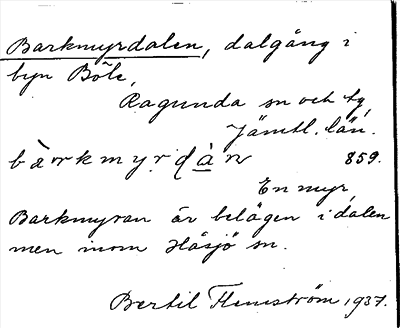 Barkmyrdalen, dalgång i
byn Böle,
Ragunda sn och tg,
Jämtl. län.
859.
En myr,
Barkmyran är belägen i dalen
men inom Håsjö sn.
Bertil Flemström, 1937.